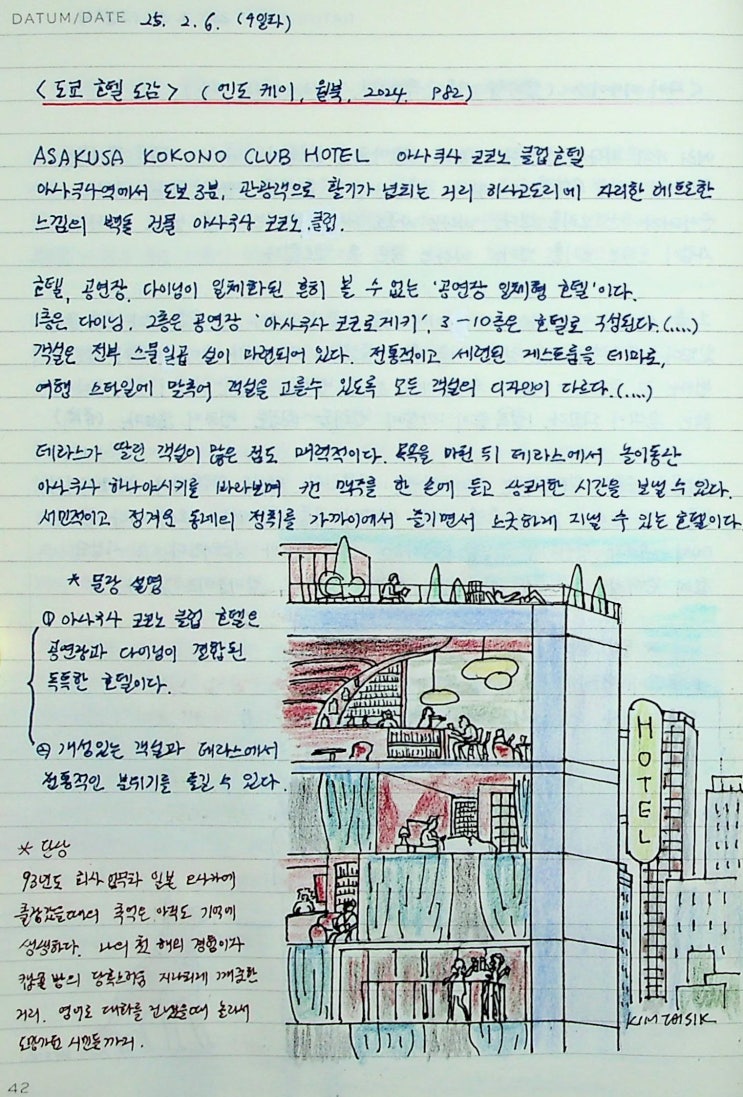 DATUM/DATE 25. 2. 6. (4일차)
<도쿄 호텔 도감> (엔도 케이, 윌북, 2024. P82)
ASAKUSA KOKONO CLUB HOTEL 아사쿠사 코코노 클럽 호텔
아사쿠사역에서 도보 3분, 관광객으로 활기가 넘치는 거리 히사고도리에 자리한 레트로한
느낌의 벽돌 건물 아사쿠사 코코노 클럽.
호텔, 공연장, 다이닝이 일체화된 흔히 볼 수 없는 '공연장 일체형 호텔'이다.
1층은 다이닝, 2층은 공연장 '아사쿠사 코코로게키', 3-10층은 호텔로 구성된다.(....)
객실은 전부 스물일곱 실이 마련되어 있다. 전통적이고 세련된 게스트룸을 테마로,
여행 스타일에 맞추어 객실을 고를수 있도록 모든 객실의 디자인이 다르다.(....)
테라스가 딸린 객실이 많은 점도 매력적이다. 목욕을 마친 뒤 테라스에서 놀이동산
아사쿠사 하나야시키를 바라보며 캔 맥주를 한 손에 들고 상쾌한 시간을 보낼 수 있다.
서민적이고 정겨운 동네의 정취를 가까이에서 즐기면서 느긋하게 지낼 수 있는 호텔이다
* 문장 설명
① 아사쿠사 코코노 클럽 호텔은
공연장과 다이닝이 결합된
독특한 호텔이다.
② 개성있는 객실과 테라스에서
전통적인 분위기를 즐길 수 있다.
HOTEL
* 단상
93년도 회사 입력차 일본 오사카에
출장갔을때의 추억은 아직도 기억에
생생하다. 나의 첫 해외 경험이자
캡슐 방의 당혹스러움 지나치게 깨끗한
거리. 영어로 대화를 건넸을때 놀라서
도망가던 시민들까지.
KIM TAISIK
42